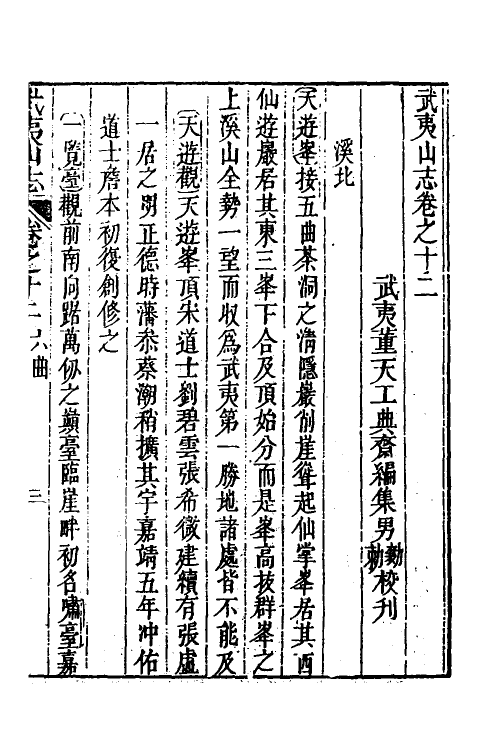 武夷山志卷之十二
武夷董天工典齋編集男勳勅校刊
溪北
天遊峯接五曲茶洞之清隱巖削崖聳起仙掌峯居其西
仙遊巖居其東三峯下合及頂始分而是峯高拔群峯之
上溪山全勢一望而收爲武夷第一勝地諸處皆不能及
天遊觀天遊峯頂宋道士劉碧雲張希微建續有張盧
一居之明正德時潘叅蔡潮稍擴其宇嘉靖五年冲佑
道士詹本初復創修之
一覽臺觀前南向踞萬仭之巔臺臨崖畔初名嘯臺嘉
武夷山志 卷之十二 六曲 三